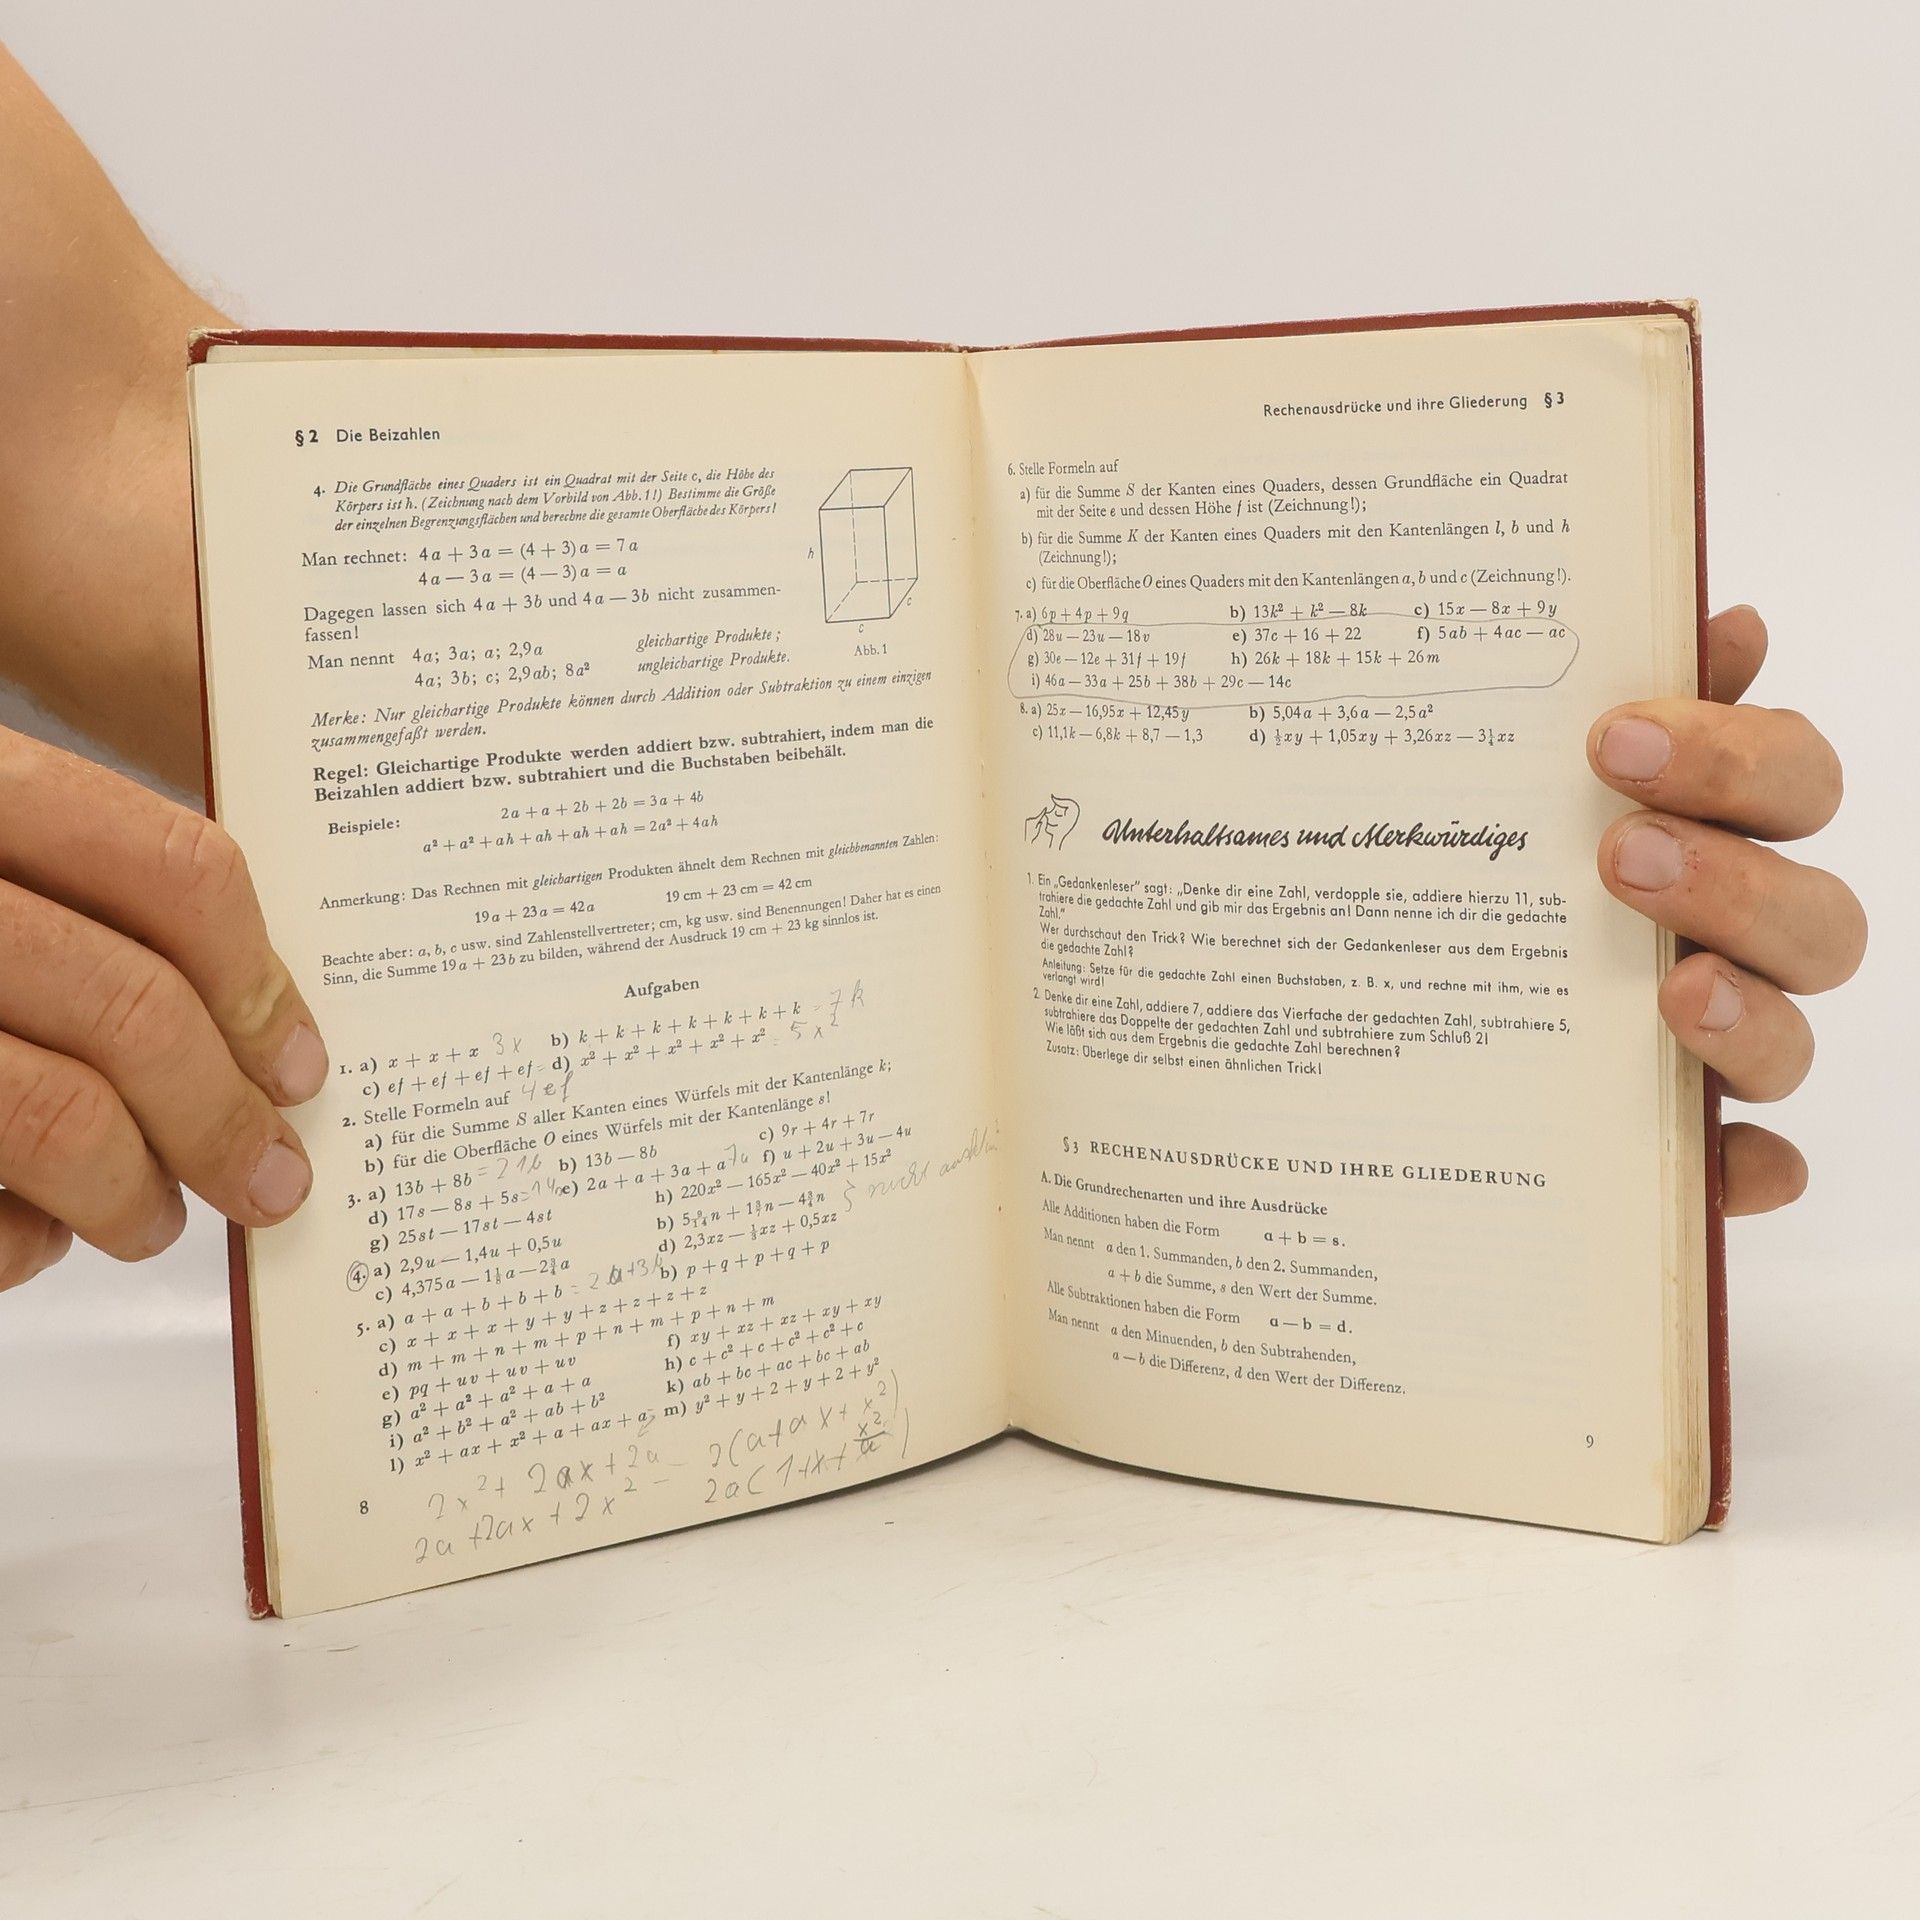 § 2 Die Beizahlen
4. Die Grundfläche eines Quaders ist ein Quadrat mit der Seite c, die Höhe des
Körpers ist h. (Zeichnung nach dem Vorbild von Abb. 1!) Bestimme die Größe
der einzelnen Begrenzungsflächen und berechne die gesamte Oberfläche des Körpers!
Man rechnet: 4a + 3a = (4 + 3)a = 7a
4a — 3a = (4 — 3)a = a
Dagegen lassen sich 4a + 3b und 4a — 3b nicht zusammen-
fassen!
Man nennt 4a; 3a; a; 2,9a gleichartige Produkte;
4a; 3b; c; 2,9ab; 8a² ungleichartige Produkte.
h
c
c
Abb. 1
Merke: Nur gleichartige Produkte können durch Addition oder Subtraktion zu einem einzigen
zusammengefaßt werden.
Regel: Gleichartige Produkte werden addiert bzw. subtrahiert, indem man die
Beizahlen addiert bzw. subtrahiert und die Buchstaben beibehält.
Beispiele: 2a + a + 2b + 2b = 3a + 4b
a² + a² + ah + ah + ah + ah = 2a² + 4ah
Anmerkung: Das Rechnen mit gleichartigen Produkten ähnelt dem Rechnen mit gleichbenannten Zahlen:
19a + 23a = 42a 19 cm + 23 cm = 42 cm
Beachte aber: a, b, c usw. sind Zahlenstellvertreter; cm, kg usw. sind Benennungen! Daher hat es einen
Sinn, die Summe 19a + 23b zu bilden, während der Ausdruck 19 cm + 23 kg sinnlos ist.
Aufgaben
1. a) x + x + x 3x b) k + k + k + k + k + k + k = 7k
c) ef + ef + ef + ef = d) x² + x² + x² + x² + x² = 5x²
4ef
2. Stelle Formeln auf
a) für die Summe S aller Kanten eines Würfels mit der Kantenlänge k;
b) für die Oberfläche O eines Würfels mit der Kantenlänge s!
3. a) 13b + 8b = 21b b) 13b — 8b c) 9r + 4r + 7r
d) 17s — 8s + 5s = 14s e) 2a + a + 3a + a 7a f) u + 2u + 3u — 4u
g) 25st — 17st — 4st h) 220x² — 165x² — 40x² + 15x²
4. a) 2,9u — 1,4u + 0,5u b) 5 9/14 n + 1 3/7 n — 4 3/4 n nicht
c) 4,375a — 1 1/8 a — 2 3/4 a d) 2,3xz — 1/5 xz + 0,5xz
5. a) a + a + b + b + b = 2a + 3b b) p + q + p + q + p
c) x + x + x + y + y + z + z + z + z
d) m + m + n + m + p + n + m + p + n + m
e) pq + uv + uv f) xy + xz + xz + xy + xy
g) a² + a² + a² + a + a h) c + c² + c + c² + c² + c
i) a² + b² + a² + ab + b² k) ab + bc + ac + bc + ab
l) x² + ax + x² + a + ax + a m) y² + y + 2 + y + 2 + y²
2x² + 2ax + 2a 2(a + ax + x²)
2a + 2ax + 2x² = 2a(1 + x + x²/a)
8
Rechenausdrücke und ihre Gliederung § 3
6. Stelle Formeln auf
a) für die Summe S der Kanten eines Quaders, dessen Grundfläche ein Quadrat
mit der Seite e und dessen Höhe f ist (Zeichnung!);
b) für die Summe K der Kanten eines Quaders mit den Kantenlängen l, b und h
(Zeichnung!);
c) für die Oberfläche O eines Quaders mit den Kantenlängen a, b und c (Zeichnung!).
7. a) 6p + 4p + 9q b) 13k² + k² — 8k c) 15x — 8x + 9y
d) 28u — 23u — 18v e) 37c + 16 + 22 f) 5ab + 4ac — ac
g) 30e — 12e + 31f + 19f h) 26k + 18k + 15k + 26m
i) 46a — 33a + 25b + 38b + 29c — 14c
8. a) 25x — 16,95x + 12,45y b) 5,04a + 3,6a — 2,5a²
c) 11,1k — 6,8k + 8,7 — 1,3 d) ½xy + 1,05xy + 3,26xz — 3¼xz
Unterhaltsames und Merkwürdiges
1. Ein „Gedankenleser“ sagt: „Denke dir eine Zahl, verdopple sie, addiere hierzu 11, sub-
trahiere die gedachte Zahl und gib mir das Ergebnis an! Dann nenne ich dir die gedachte
Zahl.“
Wer durchschaut den Trick? Wie berechnet sich der Gedankenleser aus dem Ergebnis
die gedachte Zahl?
Anleitung: Setze für die gedachte Zahl einen Buchstaben, z. B. x, und rechne mit ihm, wie es
verlangt wird!
2. Denke dir eine Zahl, addiere 7, addiere das Vierfache der gedachten Zahl, subtrahiere 5,
subtrahiere das Doppelte der gedachten Zahl und subtrahiere zum Schluß 2!
Wie läßt sich aus dem Ergebnis die gedachte Zahl berechnen?
Zusatz: Überlege dir selbst einen ähnlichen Trick!
§ 3 RECHENAUSDRÜCKE UND IHRE GLIEDERUNG
A. Die Grundrechenarten und ihre Ausdrücke
Alle Additionen haben die Form a + b = s.
Man nennt a den 1. Summanden, b den 2. Summanden,
a + b die Summe, s den Wert der Summe.
Alle Subtraktionen haben die Form a — b = d.
Man nennt a den Minuenden, b den Subtrahenden,
a — b die Differenz, d den Wert der Differenz.
9